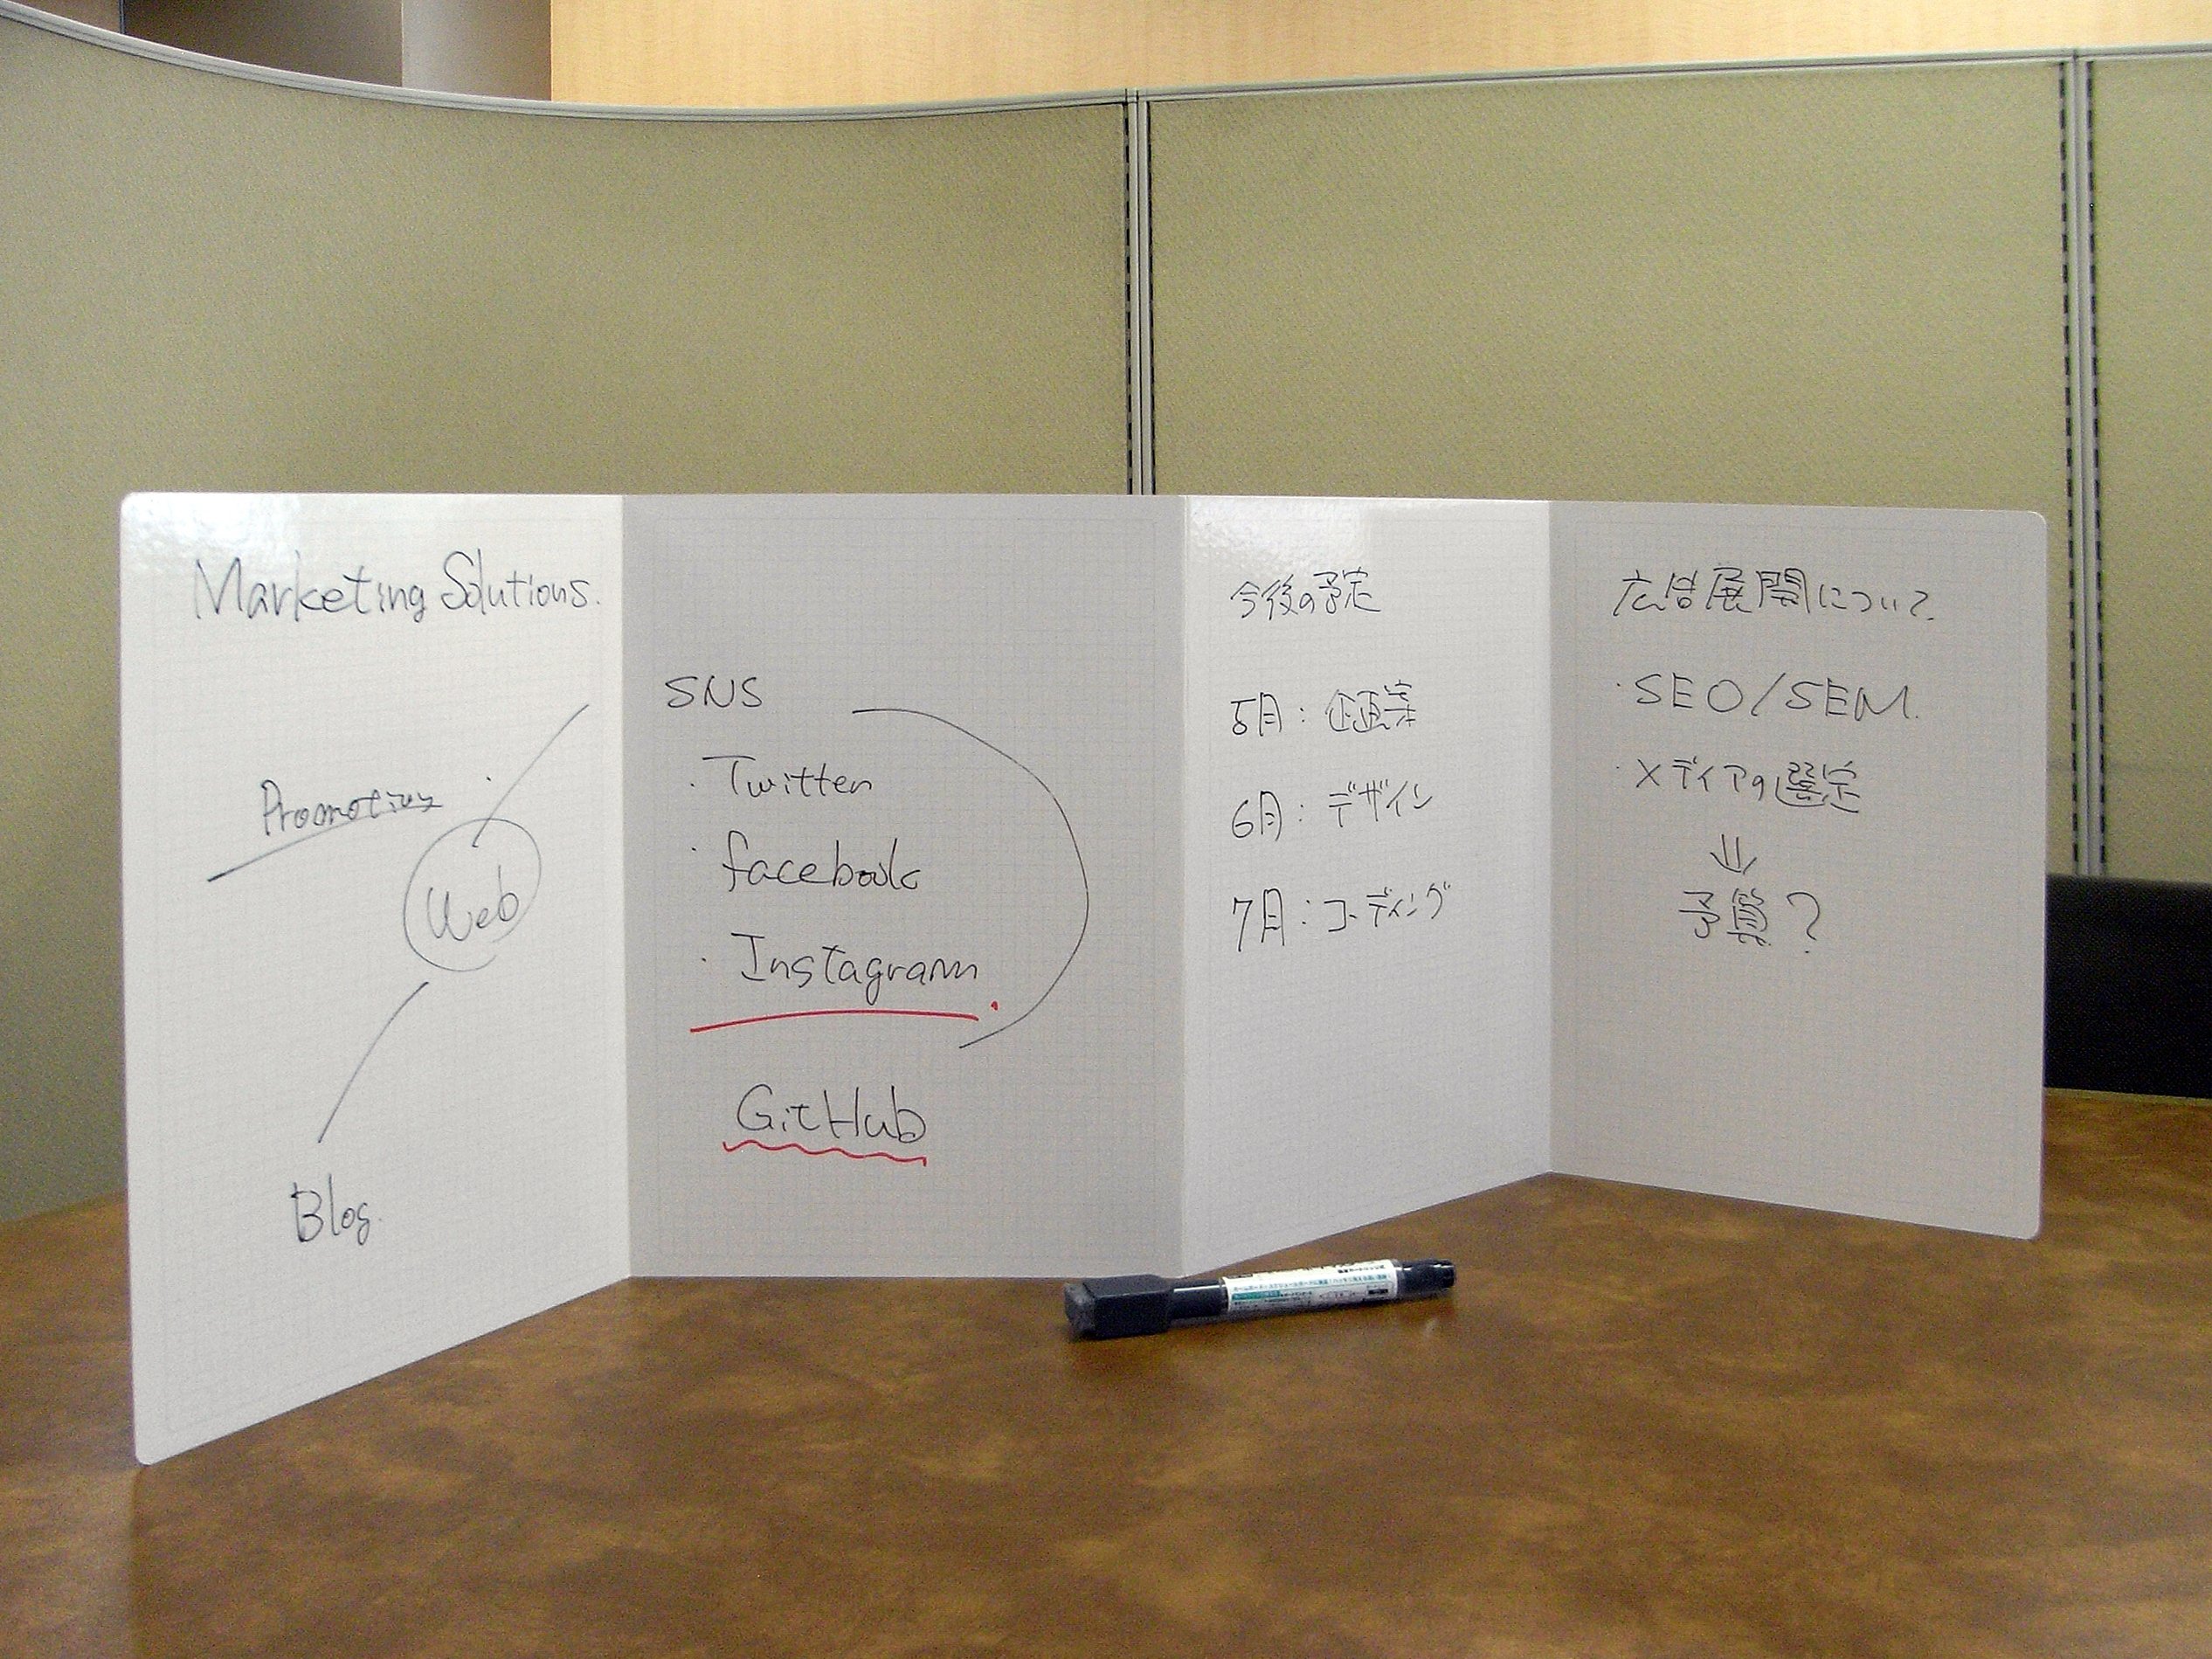 Marketing Solutions.
Promotion
Web
Blog.
SNS
・Twitter
・facebook
・Instagram
GitHub
今後の予定
5月：企画案
6月：デザイン
7月：コーディング
広告展開について
・SEO/SEM.
・メディアの選定
⇓
予算？